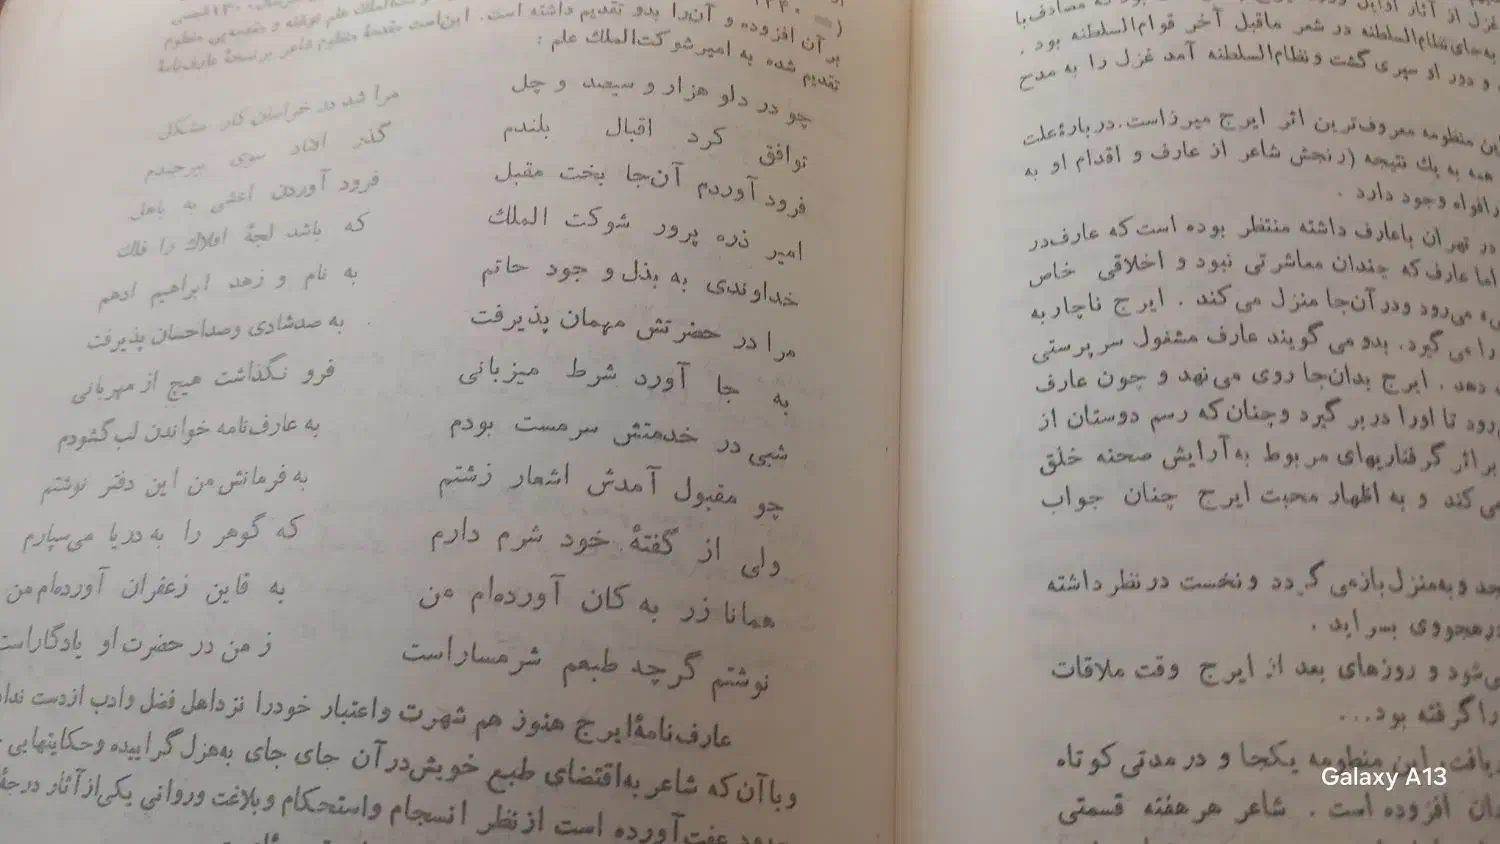 غزل از آثار اوایل
به‌جای نظام‌السلطنه در شعر ماقبل آخر قوام‌السلطنه بود .
و دور او سپری گشت و نظام‌السلطنه آمد غزل را به مدح
این منظومه معروف‌ترین اثر ایرج میرزاست. دربارهٔ علت
همه به یك نتیجه (رنجش شاعر از عارف و اقدام او به
افواه وجود دارد .
در تهران باعارف داشته منتظر بوده است که عارف‌در
اما عارف‌که چندان معاشرتی نبود و اخلاقی خاص
می‌رود ودر آن‌جا منزل می‌کند . ایرج ناچار به
را می‌گیرد. بدو می‌گویند عارف مشغول سرپرستی
دهد . ایرج بدان‌جا روی می‌نهد و چون عارف
رود تا اورا دربر گیرد وچنان‌که رسم دوستان از
براثر گرفتاریهای مربوط به‌آرایش صحنه خلق
می‌کند و به اظهار محبت ایرج چنان جواب
و به‌منزل بازمی‌گردد و نخست در نظر داشته
درهجووی بسراید .
می‌شود و روزهای بعد از ایرج وقت ملاقات
را گرفته بود...
این منظومه یکجا و در مدتی کوتاه
افزوده است . شاعر هر هفته قسمتی
بر آن افزوده و آن‌را بدو تقدیم داشته است. این‌است مقدمهٔ منظوم شاعر بر نسخهٔ عارف‌نامهٔ
تقدیم شده به امیرشوکت‌الملك علم :
چو در دلو هزار و سیصد و چل مرا شد در خراسان کار مشکل
توافق کرد اقبال بلندم گذر افتاد سوی بیرجندم
فرود آوردم آن‌جا بخت مقبل فرود آوردن اعشی به باهل
امیر ذره پرور شوکت الملك که باشد لجهٔ افلاك را فلك
خداوندی به بذل و جود حاتم به نام و زهد ابراهیم ادهم
مرا در حضرتش مهمان پذیرفت به صدشادی وصداحسان پذیرفت
به جا آورد شرط میزبانی فرو نگذاشت هیچ از مهربانی
شبی در خدمتش سرمست بودم به عارف‌نامه خواندن لب‌گشودم
چو مقبول آمدش اشعار زشتم به فرمانش من این دفتر نوشتم
ولی از گفتهٔ خود شرم دارم که گوهر را به دریا می‌سپارم
همانا زر به کان آورده‌ام من به قاین زعفران آورده‌ام من
نوشتم گرچه طبعم شرمساراست ز من در حضرت او یادگاراست
عارف‌نامهٔ ایرج هنوز هم شهرت واعتبار خودرا نزداهل فضل وادب ازدست
وباآن‌که شاعر به‌اقتضای طبع خویش‌درآن جای جای به‌هزل گراییده وحکایتهایی
عفت آورده است از نظر انسجام واستحکام وبلاغت وروانی یکی‌ازآثار